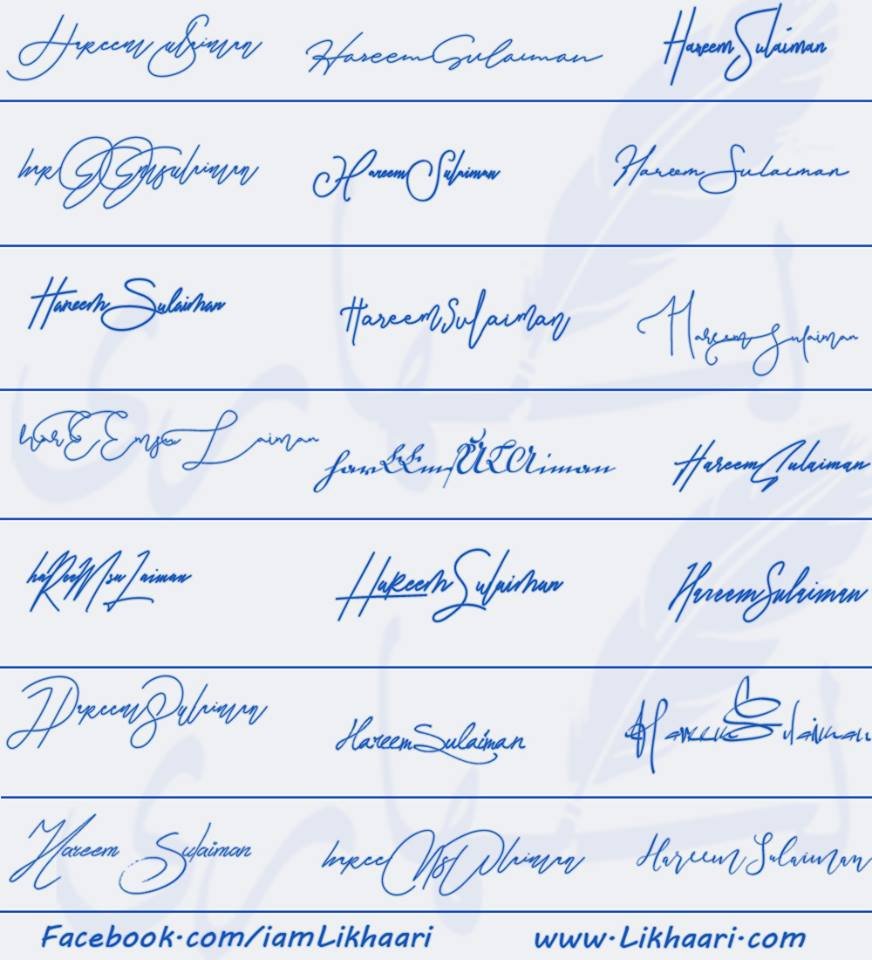 Hareem Sulaiman Hareem Sulaiman Hareem Sulaiman
harEEmsulaiman Hareem Sulaiman Hareem Sulaiman
Hareem Sulaiman Hareem Sulaiman Hareem Sulaiman
harEEmsuLaiman harEEmSULAiman Hareem Sulaiman
haReeMsuLaiman HaReem Sulaiman Hareem Sulaiman
Hareem Sulaiman Hareem Sulaiman Hareem Sulaiman
Hareem Sulaiman hareeMsUlaiman Hareem Sulaiman
Facebook.com/iamLikhaari www.Likhaari.com